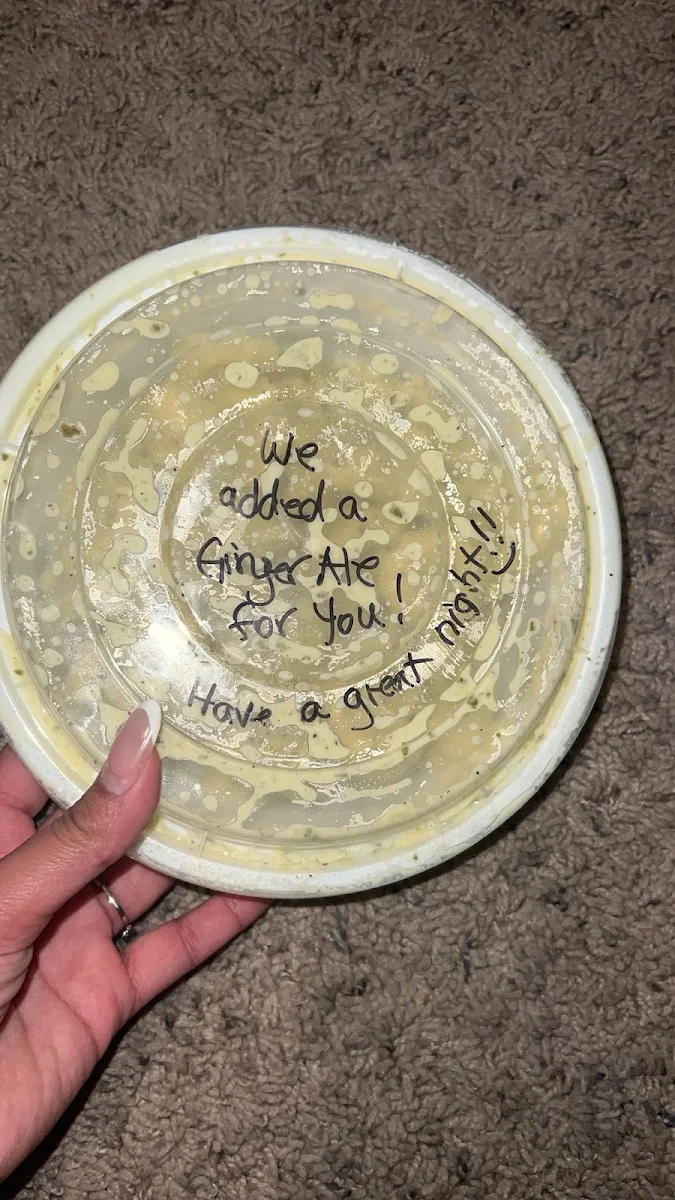 We
added a
Ginger Ale
for you!
Have a great night!! :)